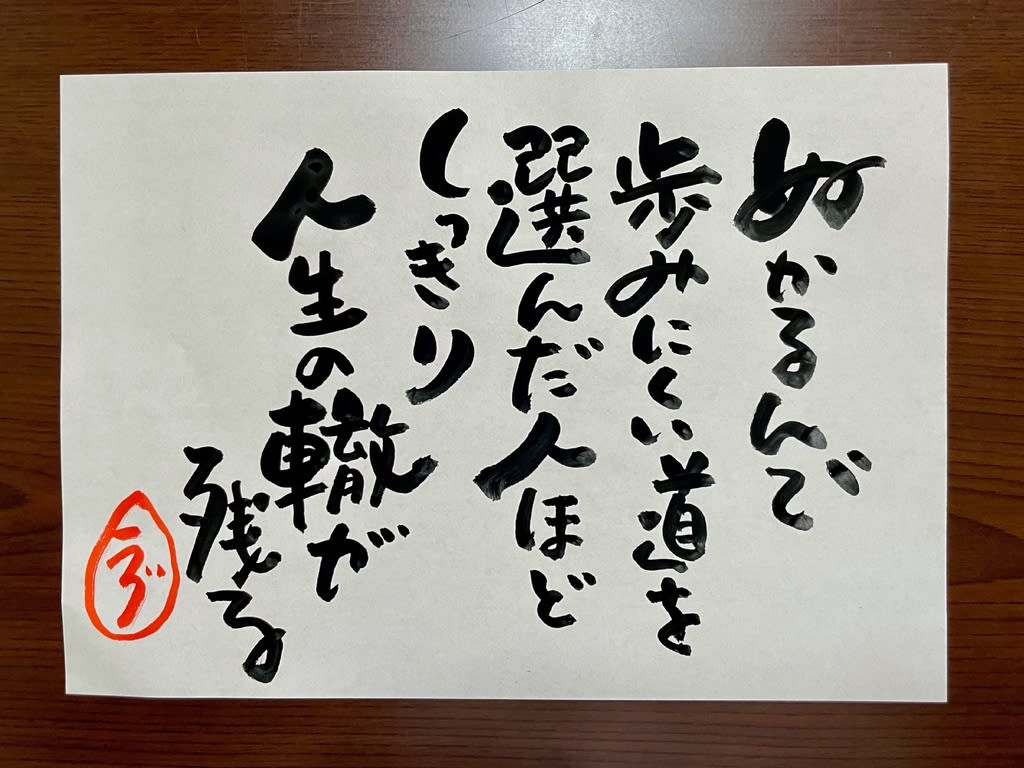 ぬかるんで
歩みにくい道を
選んだ人ほど
しっきり
人生の轍が
残る